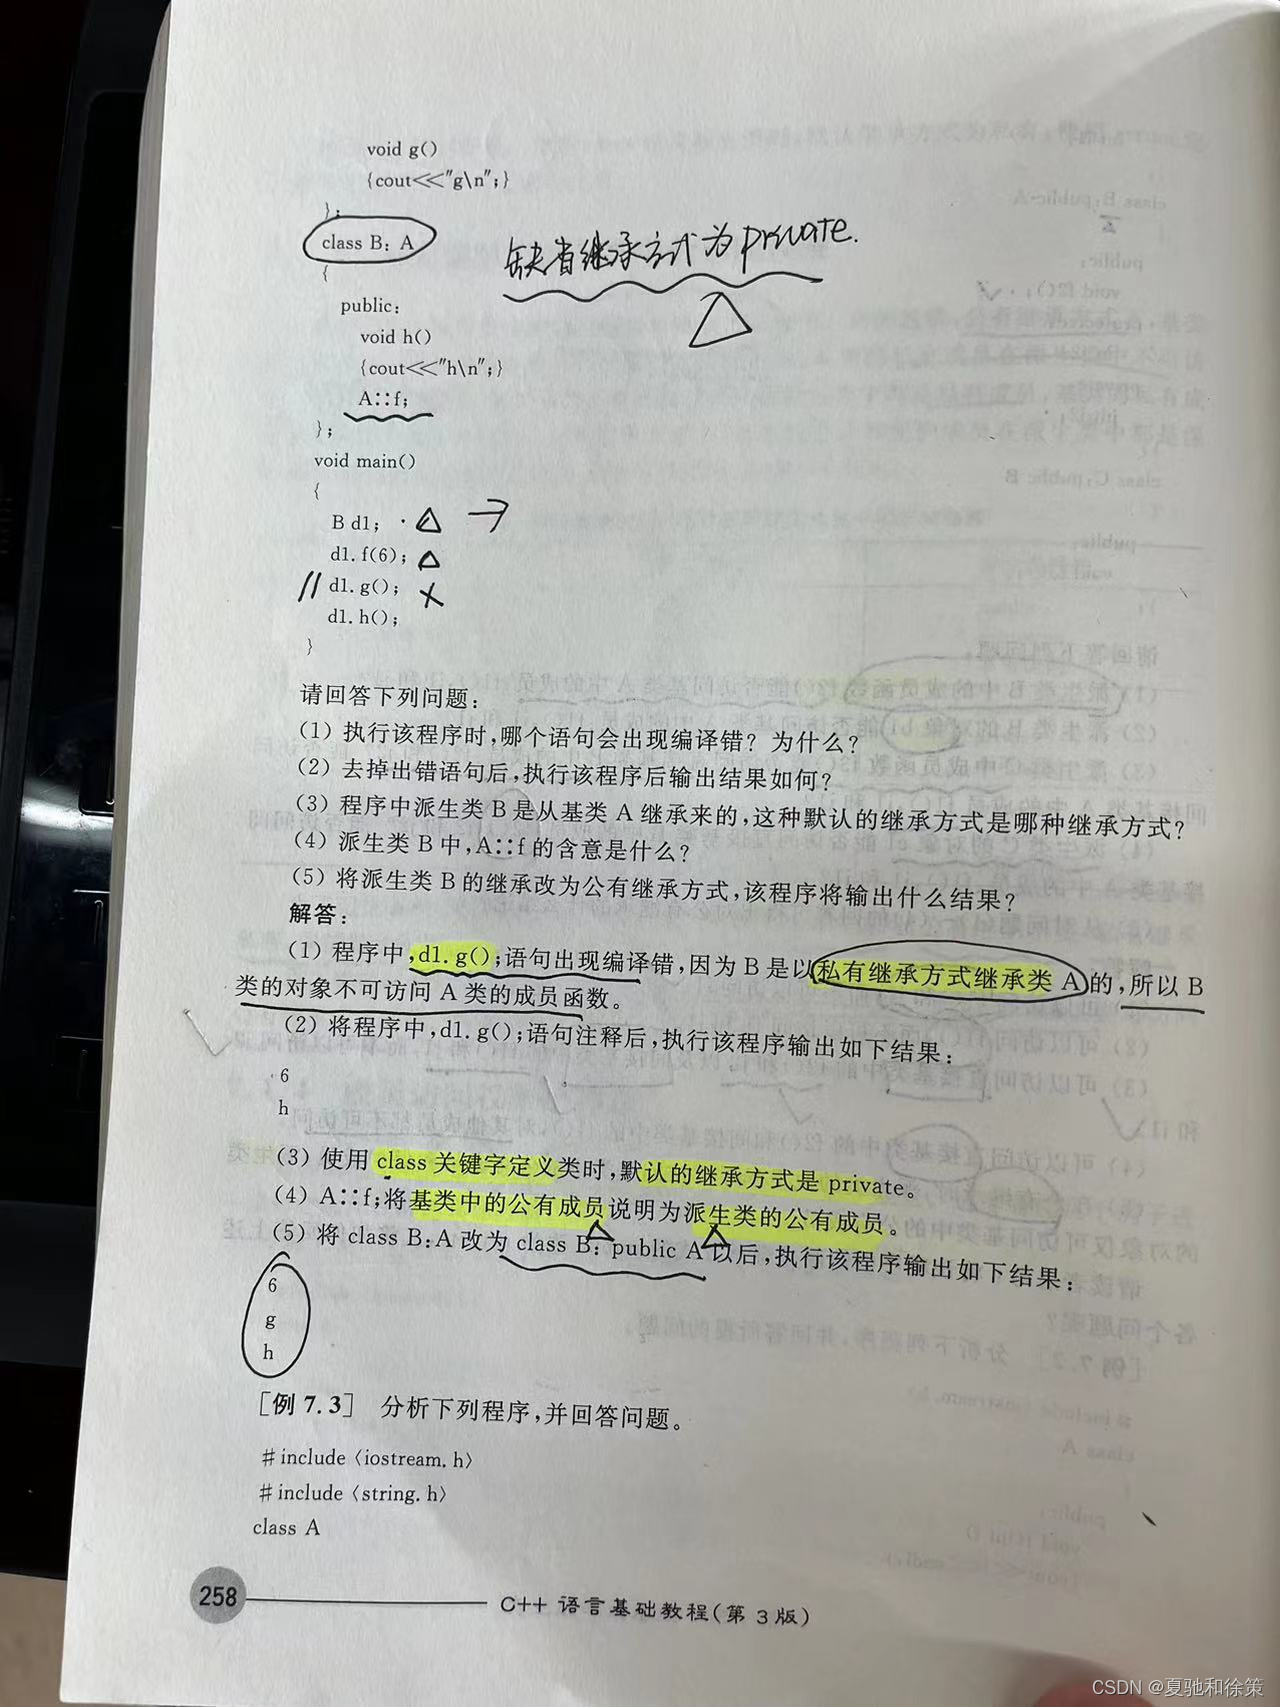 void g()
{cout<<"g\n";}
};
class B: A
缺省继承方式为private.
{
public:
void h()
{cout<<"h\n";}
A::f;
};
void main()
{
B d1;
d1.f(6);
// d1.g(); ×
d1.h();
}
请回答下列问题:
(1) 执行该程序时,哪个语句会出现编译错? 为什么?
(2) 去掉出错语句后,执行该程序后输出结果如何?
(3) 程序中派生类 B 是从基类 A 继承来的,这种默认的继承方式是哪种继承方式?
(4) 派生类 B 中,A::f 的含意是什么?
(5) 将派生类 B 的继承改为公有继承方式,该程序将输出什么结果?
解答:
(1) 程序中,d1.g();语句出现编译错,因为 B 是以私有继承方式继承类 A 的,所以 B
类的对象不可访问 A 类的成员函数。
(2) 将程序中,d1.g();语句注释后,执行该程序输出如下结果:
6
h
(3) 使用 class 关键字定义类时,默认的继承方式是 private。
(4) A::f;将基类中的公有成员说明为派生类的公有成员。
(5) 将 class B:A 改为 class B: public A 以后,执行该程序输出如下结果:
6
g
h
[例 7.3] 分析下列程序,并回答问题。
#include〈iostream.h〉
#include〈string.h〉
class A
258 C++ 语言基础教程(第 3 版)
CSDN @夏驰和徐策